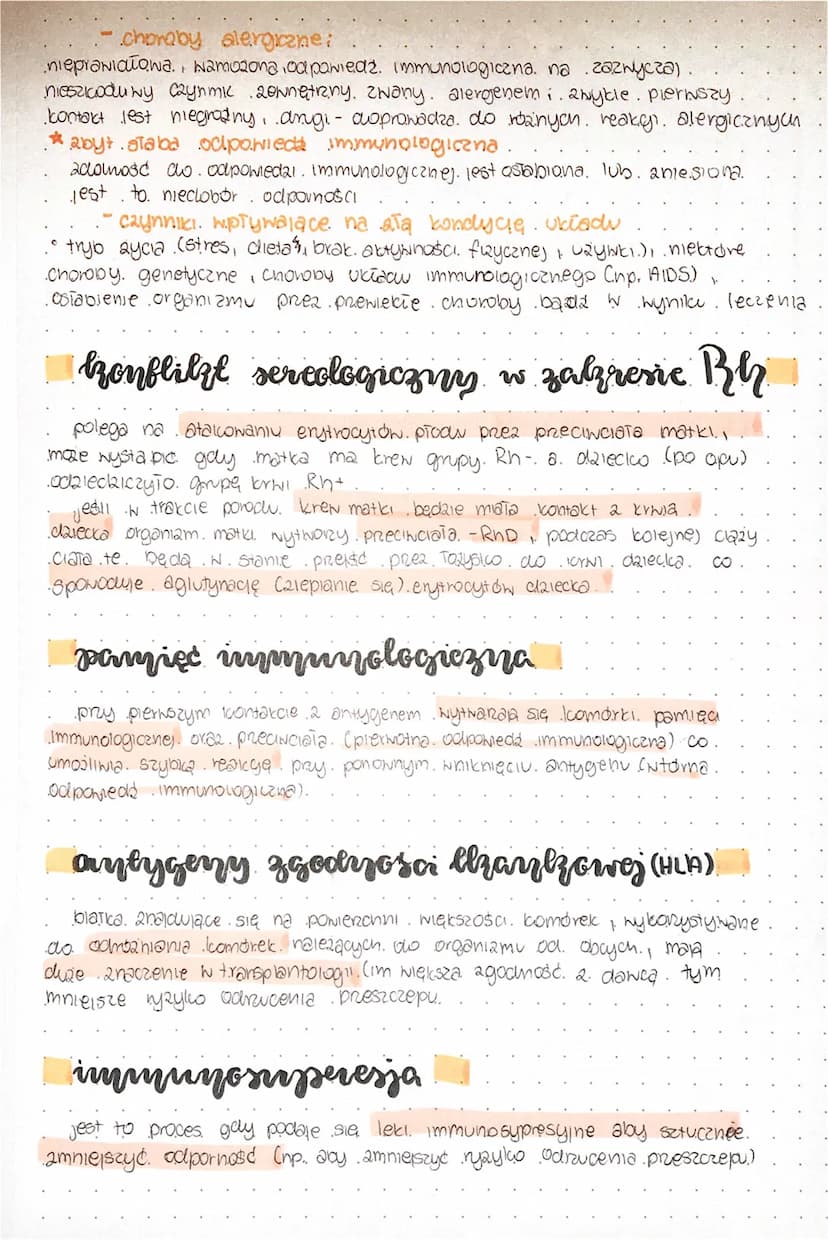 - choroby alergiczne:
nieprawidłowa, wzmożona odpowiedź immunologiczna na zazwyczaj
nieszkodliwy czynnik zewnętrzny zwany alergenem; zwykle pierwszy
kontakt jest niegroźny, drugi - doprowadza do różnych reakcji alergicznych
* zbyt słaba odpowiedź immunologiczna
zdolność do odpowiedzi immunologicznej jest osłabiona lub zniesiona
jest to niedobór odporności
- czynniki wpływające na złą kondycję układu
° tryb życia (stres, dieta, brak aktywności fizycznej, używki), niektóre
choroby genetyczne, choroby układu immunologicznego (np. AIDS),
osłabienie organizmu przez przewlekłe choroby bądź w wyniku leczenia
konflikt serologiczny w zakresie Rh
polega na atakowaniu erytrocytów płodu przez przeciwciała matki,
może wystąpić gdy matka ma krew grupy Rh- a dziecko (po ojcu)
odziedziczyło grupę krwi Rh+
jeśli w trakcie porodu krew matki będzie miała kontakt z krwią
dziecka organizm matki wytworzy przeciwciała -RhD, podczas kolejnej ciąży
ciała te będą w stanie przejść przez łożysko do krwi dziecka co
spowoduje aglutynację (zlepianie się) erytrocytów dziecka
pamięć immunologiczna
przy pierwszym kontakcie z antygenem wytwarzają się komórki pamięci
immunologicznej oraz przeciwciała (pierwotna odpowiedź immunologiczna) co
umożliwia szybką reakcję przy ponownym wniknięciu antygenu (wtórna
odpowiedź immunologiczna).
antygeny zgodności tkankowej (HLA)
białka znajdujące się na powierzchni większości komórek, wykorzystywane
do odróżniania komórek należących do organizmu od obcych, mają
duże znaczenie w transplantologii (im większa zgodność z dawcą tym
mniejsze ryzyko odrzucenia przeszczepu.
immunosuperesja
jest to proces gdy podaje się leki immunosypresyjne aby sztucznie
zmniejszyć odporność (np. aby zmniejszyć ryzyko odrzucenia przeszczepu)